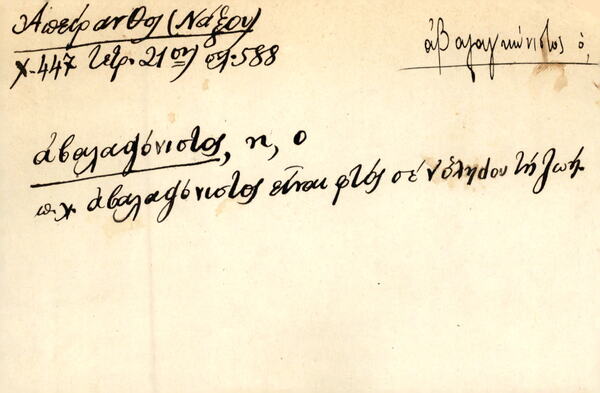 Ἀπείρανθος (Νάξου)
Χ. 447 Τετρ. 21ον σελ. 588
ἀβαλαγκώνιστος ὁ,
ἀβαλαgόνιστος, η, ο
π.χ. ἀβαλαgόνιστος εἶναι φτός σέ ν'ὅληdου τή ζωή.